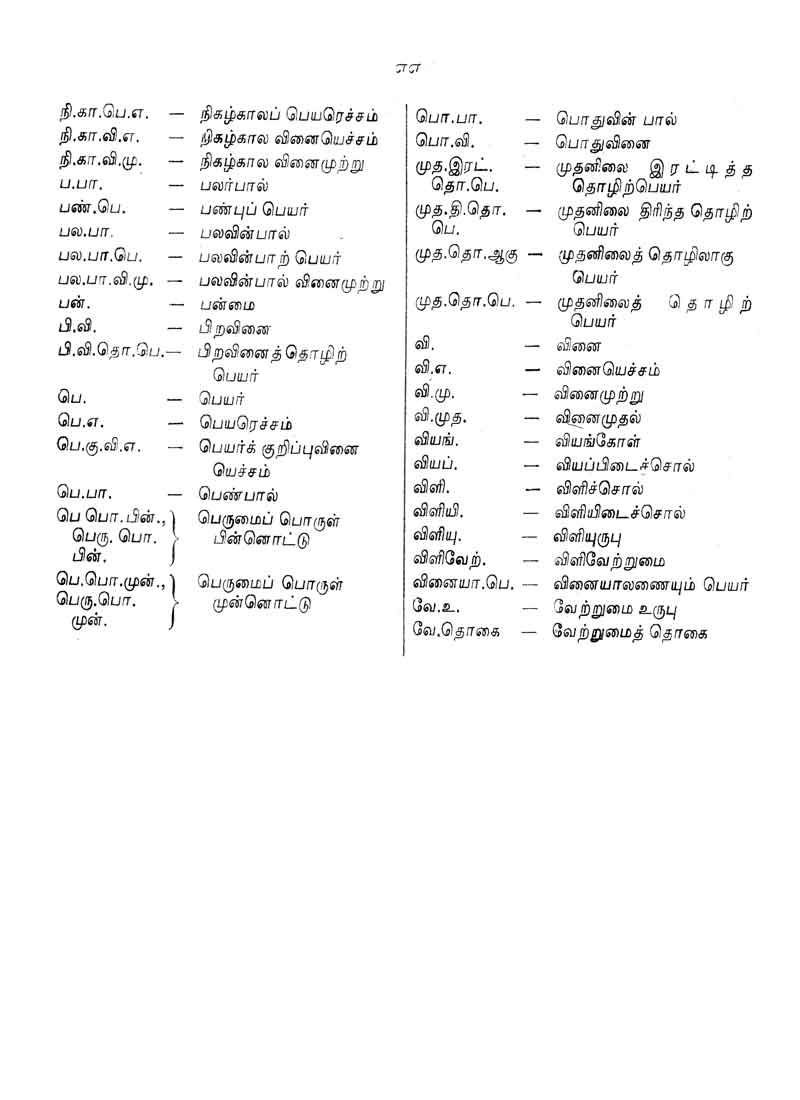 எஎ
நி.கா.பெ.எ. — நிகழ்காலப் பெயரெச்சம்
நி.கா.வி.எ. — நிகழ்கால வினையெச்சம்
நி.கா.வி.மு. — நிகழ்கால வினைமுற்று
ப.பா. — பலர்பால்
பண்.பெ. — பண்புப் பெயர்
பல.பா. — பலவின்பால்
பல.பா.பெ. — பலவின்பாற் பெயர்
பல.பா.வி.மு. — பலவின்பால் வினைமுற்று
பன். — பன்மை
பி.வி. — பிறவினை
பி.வி.தொ.பெ.— பிறவினைத்தொழிற்
பெயர்
பெ. — பெயர்
பெ.எ. — பெயரெச்சம்
பெ.கு.வி.எ. — பெயர்க் குறிப்புவினை
யெச்சம்
பெ.பா. — பெண்பால்
பெ பொ.பின்., பெருமைப் பொருள்
பெரு. பொ. பின்னொட்டு
பின்.
பெ.பொ.முன்., பெருமைப் பொருள்
பெரு.பொ. முன்னொட்டு
முன்.
பொ.பா. — பொதுவின் பால்
பொ.வி. — பொதுவினை
முத.இரட். — முதனிலை இரட்டித்த
தொ.பெ. தொழிற்பெயர்
முத.தி.தொ. — முதனிலை திரிந்த தொழிற்
பெ. பெயர்
முத.தொ.ஆகு — முதனிலைத் தொழிலாகு
பெயர்
முத.தொ.பெ. — முதனிலைத் தொழிற்
பெயர்
வி. — வினை
வி.எ. — வினையெச்சம்
வி.மு. — வினைமுற்று
வி.முத. — வினைமுதல்
வியங். — வியங்கோள்
வியப். — வியப்பிடைச்சொல்
விளி. — விளிச்சொல்
விளியி. — விளியிடைச்சொல்
விளியு. — விளியுருபு
விளிவேற். — விளிவேற்றுமை
வினையா.பெ. — வினையாலணையும் பெயர்
வே.உ. — வேற்றுமை உருபு
வே.தொகை — வேற்றுமைத் தொகை